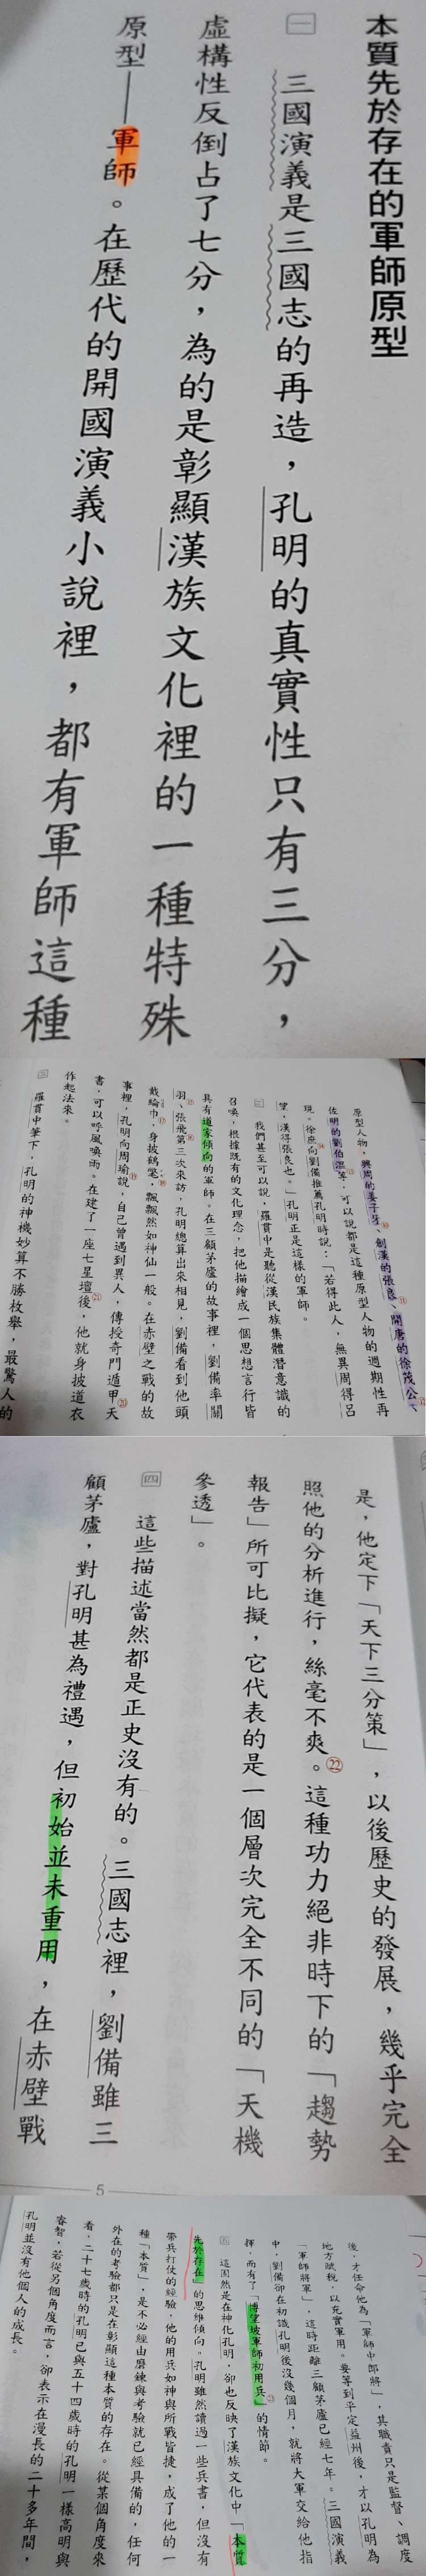 本質先於存在的軍師原型
一 三國演義是三國志的再造，孔明的真實性只有三分，
虛構性反倒占了七分，為的是彰顯漢族文化裡的一種特殊
原型——軍師。在歷代的開國演義小說裡，都有軍師這種
原型人物，興周的姜子牙⑩、創漢的張良⑪、開唐的徐茂公⑫、
佐明的劉伯溫⑬等，可以說都是這種原型人物的週期性再
現。徐庶⑭向劉備推薦孔明時說：「若得此人，無異周得呂
望，漢得張良也。」孔明正是這樣的軍師。
二 我們甚至可以說，羅貫中是聽從漢民族集體潛意識的
召喚，根據既有的文化理念，把他描繪成一個思想言行皆
具有道家傾向的軍師。在三顧茅廬的故事裡，劉備率關
羽、張飛第三次來訪，孔明總算出來相見，劉備看到他頭
戴綸巾，身披鶴氅，飄飄然如神仙一般。在赤壁之戰的故
事裡，孔明向周瑜說，自己曾遇到異人，傳授奇門遁甲天
書，可以呼風喚雨。在建了一座七星壇㉑後，他就身披道衣
作起法來。
三 羅貫中筆下，孔明的神機妙算不勝枚舉，最驚人的
是，他定下「天下三分策」，以後歷史的發展，幾乎完全
照他的分析進行，絲毫不爽㉒。這種功力絕非時下的「趨勢
報告」所可比擬，它代表的是一個層次完全不同的「天機
參透」。
四 這些描述當然都是正史沒有的。三國志裡，劉備雖三
顧茅廬，對孔明甚為禮遇，但初始並未重用，在赤壁戰
5
後，才任命他為「軍師中郎將」，其職責只是監督、調度
地方賦稅，以充實軍用。要等到平定益州後，才以孔明為
「軍師將軍」，這時距離三顧茅廬已經七年。三國演義
中，劉備卻在初識孔明後沒幾個月，就將大軍交給他指
揮，而有了「博望坡軍師初用兵」㉓的情節。
五 這固然是在神化孔明，卻也反映了漢族文化中「本質
先於存在」的思維傾向。孔明雖然讀過一些兵書，但沒有
帶兵打仗的經驗，他的用兵如神與所戰皆捷，成了他的一
種「本質」，是不必經由磨鍊與考驗就已經具備的，任何
外在的考驗都只是在彰顯這種本質的存在。從某個角度來
看，二十七歲時的孔明已與五十四歲時的孔明一樣高明與
睿智，若從另個角度而言，卻表示在漫長的二十多年間，
孔明並沒有他個人的成長。